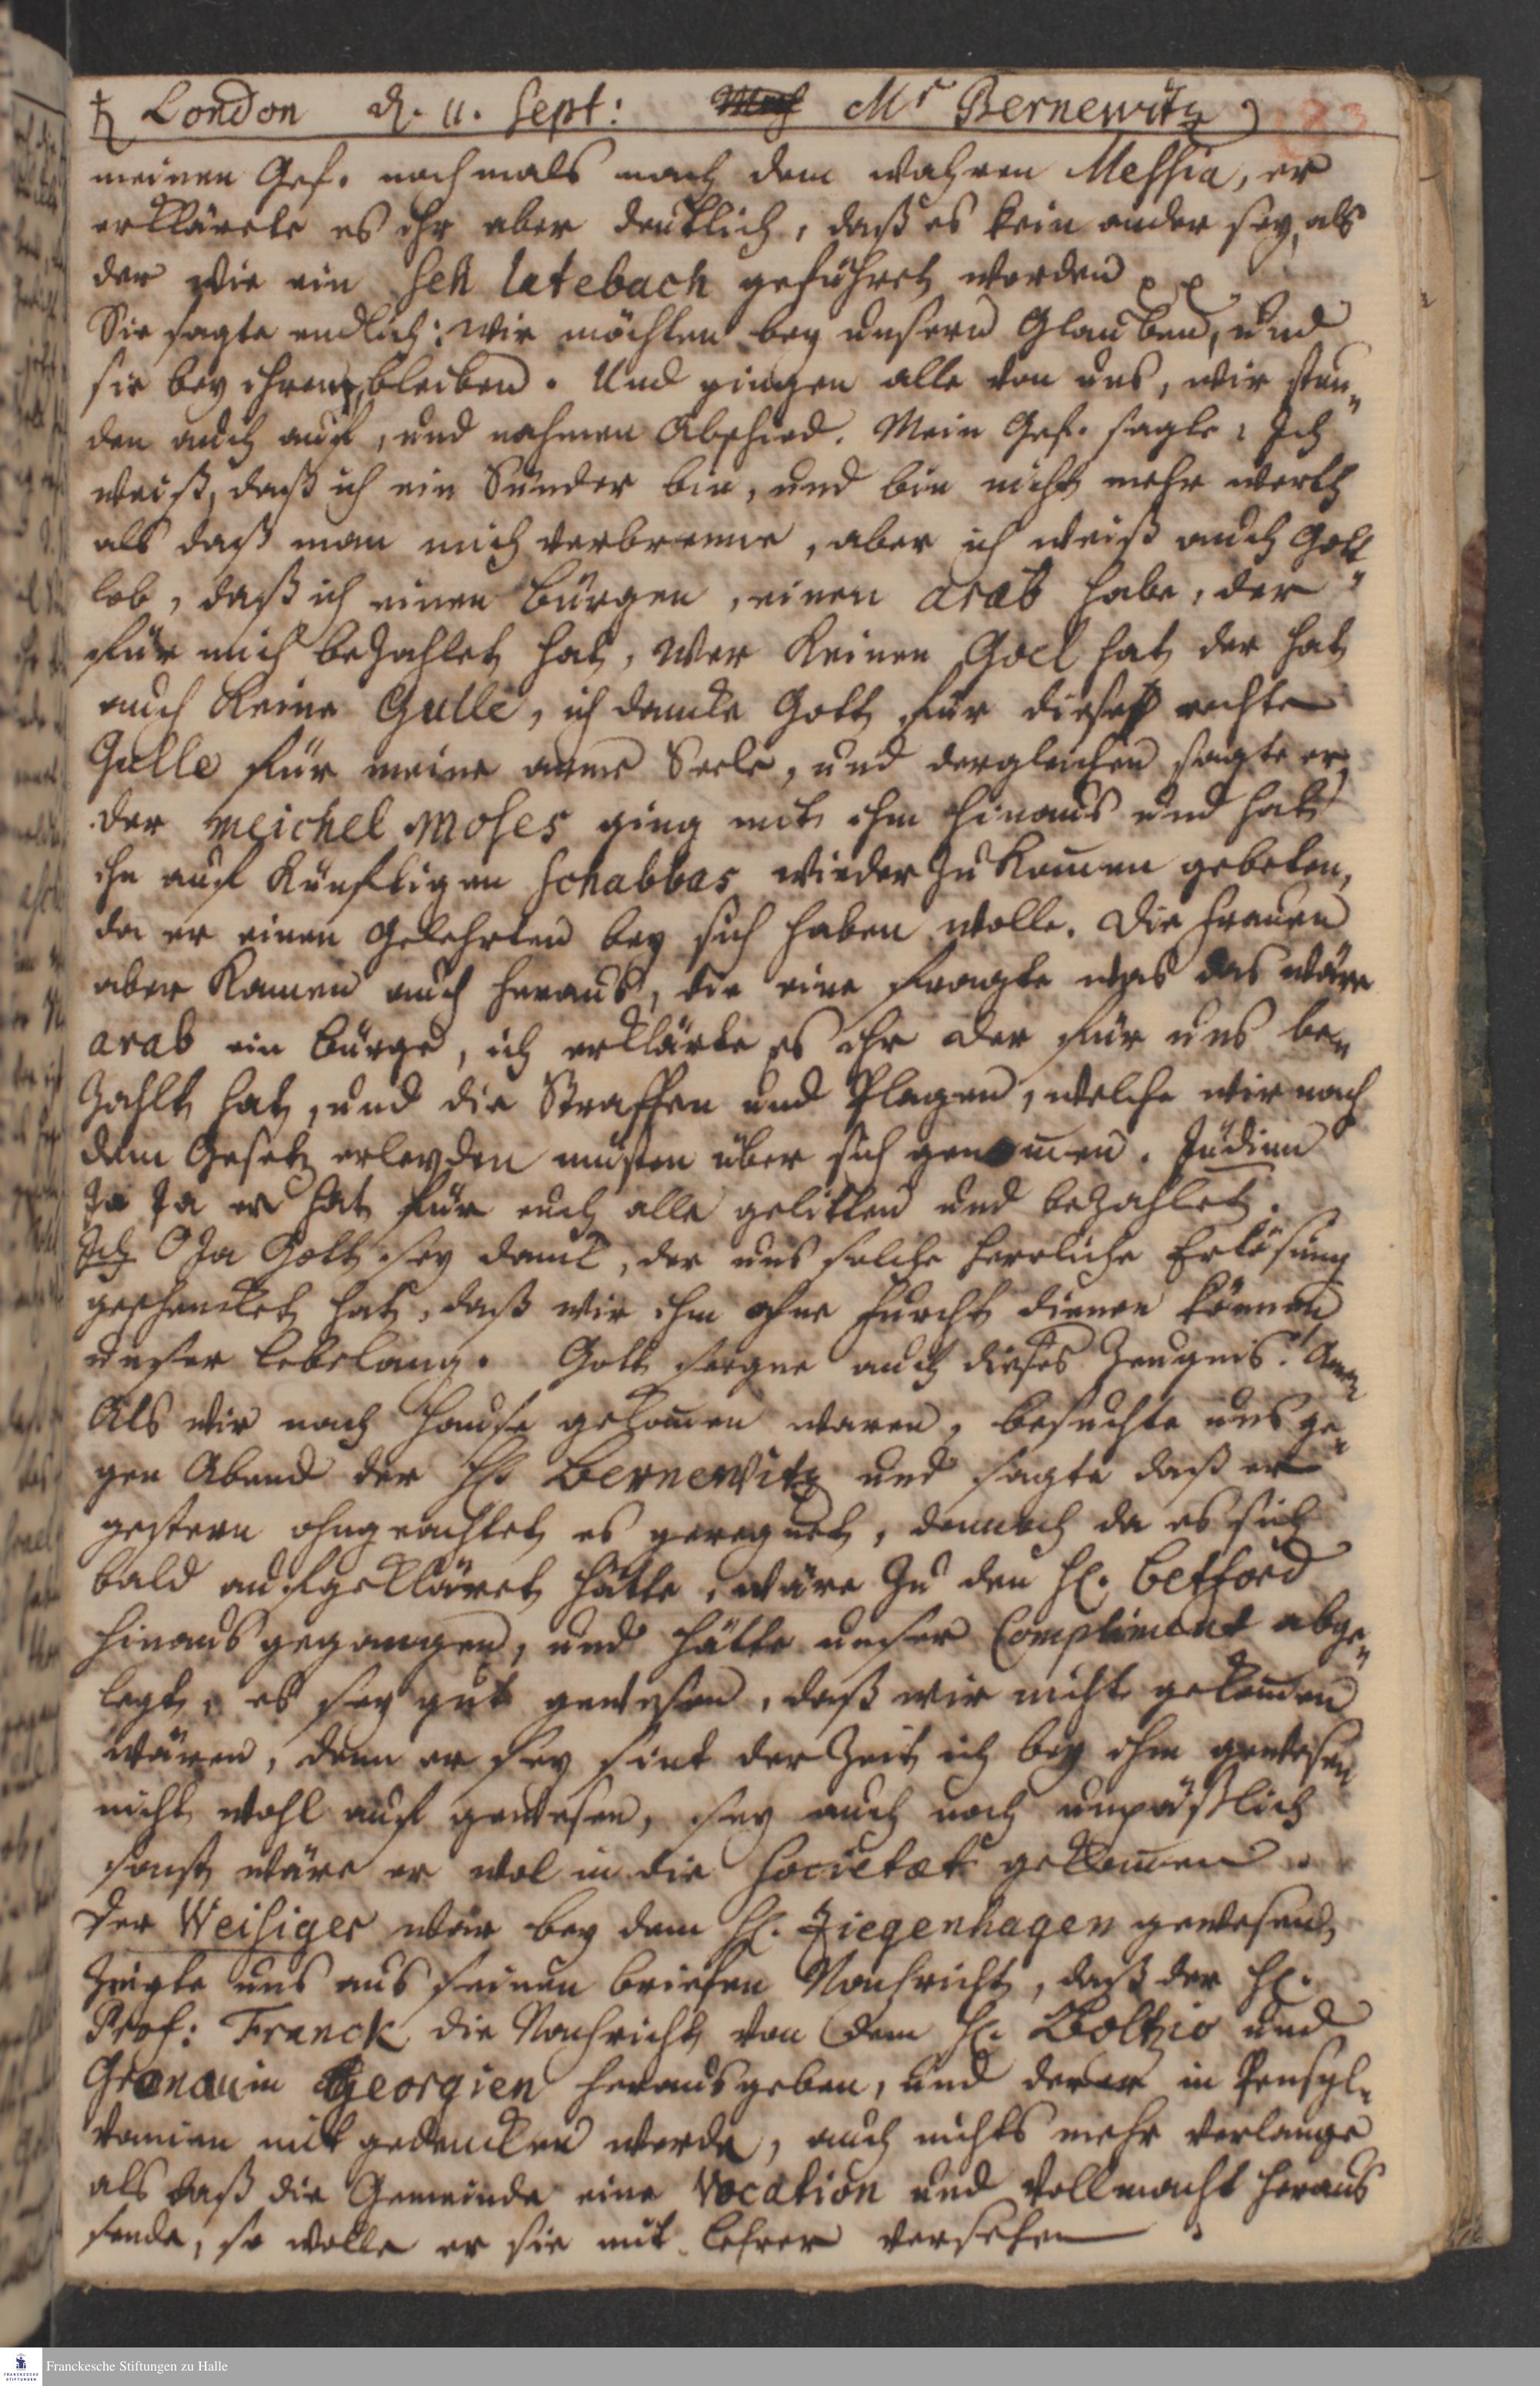 ♄ London d. 11. Sept: Mr Bernewitz 183
meinen Gef. nochmals nach dem wahren Messia, er
erklärete es ihr aber deutlich, daß es kein ander sey, als
der wie ein Seh latebach geführet worden
Sie sagte endlich: Wir möchten bey unsern Glauben, und
sie bey ihren bleiben. Und gingen alle von uns, wir stun„
den auch auf, und nahmen Abschied. Mein Gef. sagte: Ich
weiß, daß ich ein Sünder bin, und bin nicht mehr werth
als daß man mich verbrenne, aber ich weiß auch Gott
lob, daß ich einen Bürgen, einen arab habe, der
für mich bezahlet hat, Wer keinen Goel hat der hat
auch keine Gulle, ich dancke Gott für diese rechte
Gulle für meine arme Seele, und dergleichen sagte er,
der Meichel Moses ging mit ihm hinaus und hat
ihn auf künftigen Schabbas wieder zu kom̅en gebeten,
da er einen Gelehrten bey sich haben wolle. Die Frauen
aber kamen auch heraus, die eine fragte was das wäre
arab ein Bürge, ich erklärte es ihr der für uns be„
zahlt hat, und die Straffen und Plagen, welche wir nach
dem Gesetz erleyden müsten über sich genom̅en. Jüdinn
Ja Ja er hat für euch alle gelitten und bezahlet.
Ich O Ja Gott sey danck, der uns solche herrliche Erlösung
geschencket hat, daß wir ihm ohne Furcht dienen können
unser lebelang. Gott seegne auch dieses Zeugnis! Amen
Als wir nach Hause gekom̅en waren, besuchte uns ge„
gen Abend der H. Bernewitz und sagte daß er
gestern ohngeachtet es geregnet, dennoch da es sich
bald aufgekläret hätte, wäre zu den H. Betford
hinausgegangen, und hätte unser Compliment abge„
legt, es sey gut gewesen, daß wir nicht gekom̅en
wären, denn er sey sint der Zeit ich bey ihm gewesen
nicht wohl auf gewesen, sey auch noch unpäßlich
sonst wäre er wol in die Societæt gekom̅en.
Der Weisiger war bey dem H. Ziegenhagen gewesen,
zeigte uns aus seinen briefen Nachricht, daß der H.
Prof: Franck die Nachricht von dem H. Boltzio und
Gronau in Georgien herausgeben, und derer in Pensyl„
vanien mit gedencken werde, auch nichts mehr verlange
als daß die Gemeinde eine Vocation und Vollmacht heraus
sende, so wolle er sie mit Lehrer versehen.
Franckesche Stiftungen zu Halle